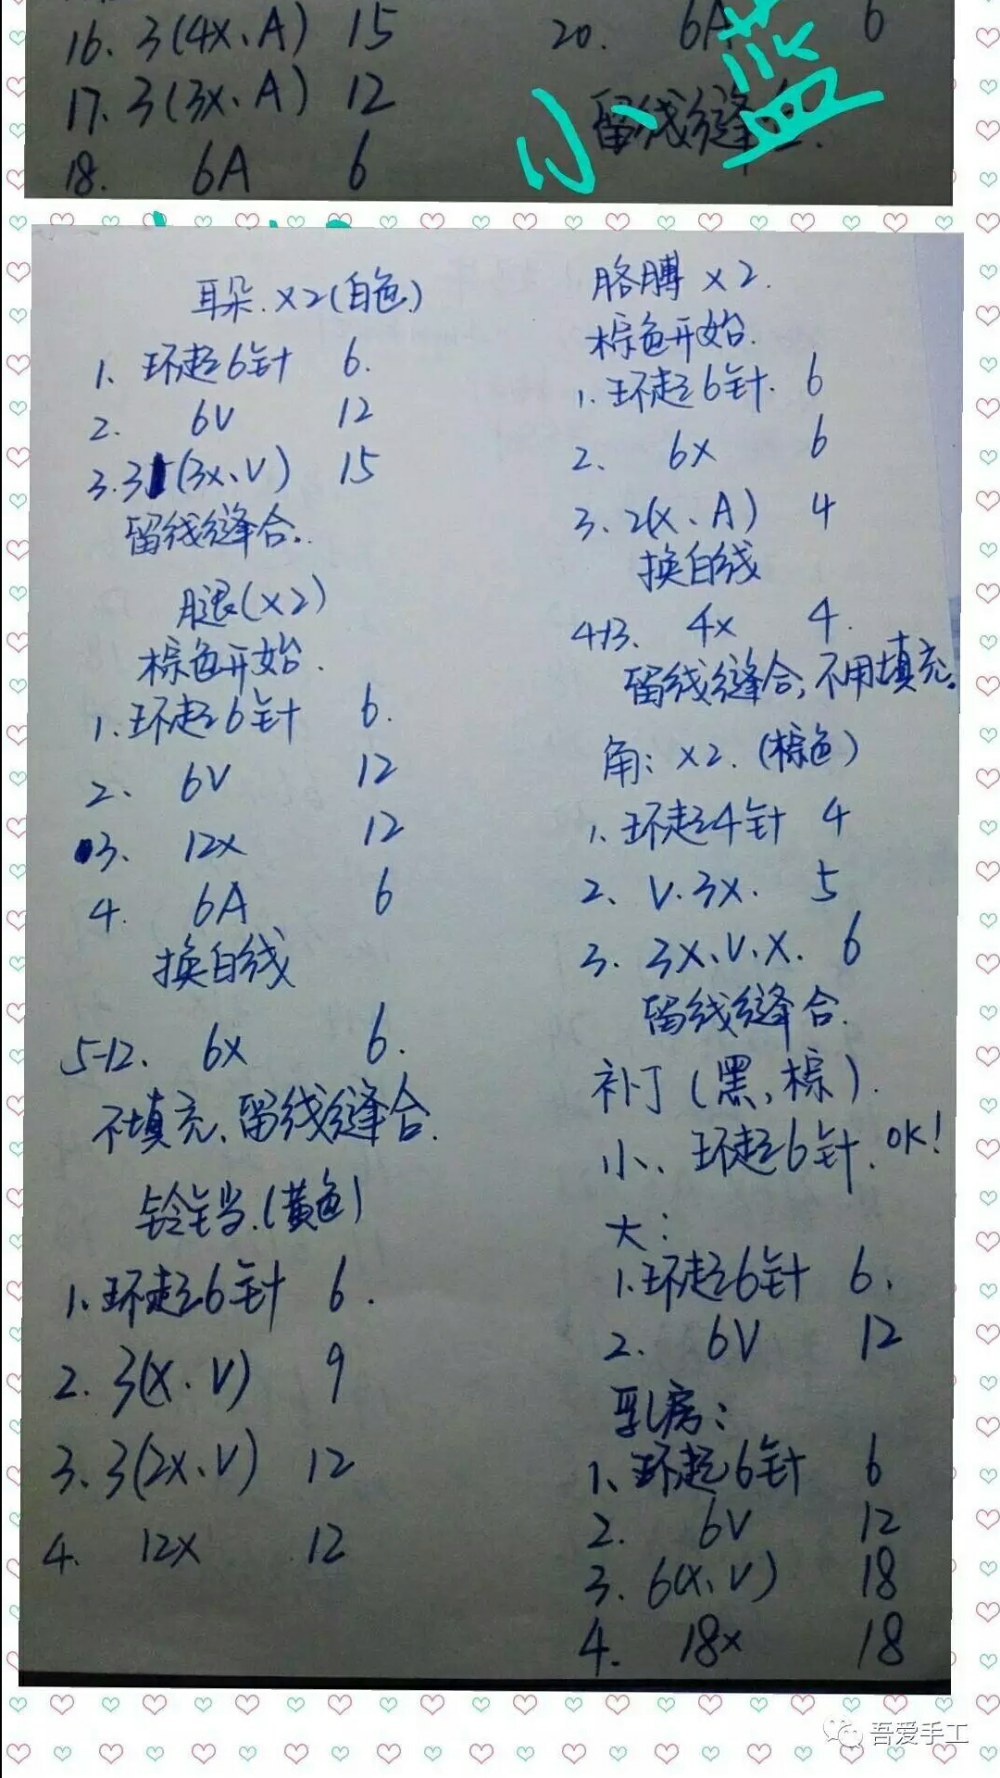 16. 3(4X、A) 15
17. 3(3X、A) 12
18. 6A 6
20. 6A 6
留线缝合.
小蓝
耳朵.X2(白色)
1、环起6针 6.
2. 6V 12
3.3(3X、V) 15
留线缝合.
腿(X2)
棕色开始.
1.环起6针 6.
2、 6V 12
3、 12X 12
4. 6A 6
换白线
5-12. 6X 6.
不填充、留线缝合.
铃铛.(黄色)
1、环起6针 6.
2. 3(X、V) 9
3、3(2X、V) 12
4. 12X 12
胳膊 X2.
棕色开始.
1、环起6针. 6
2、 6X 6
3、2(X、A) 4
换白线
4-13. 4X 4.
留线缝合,不用填充.
角: X2.(棕色)
1、环起4针 4
2、V.3X. 5
3. 3X、V、X. 6
留线缝合.
补丁(黑,棕).
小、环起6针. OK!
大:
1.环起6针 6.
2. 6V 12
乳房:
1、环起6针 6
2. 6V 12
3. 6(X、V) 18
4. 18X 18
吾爱手工